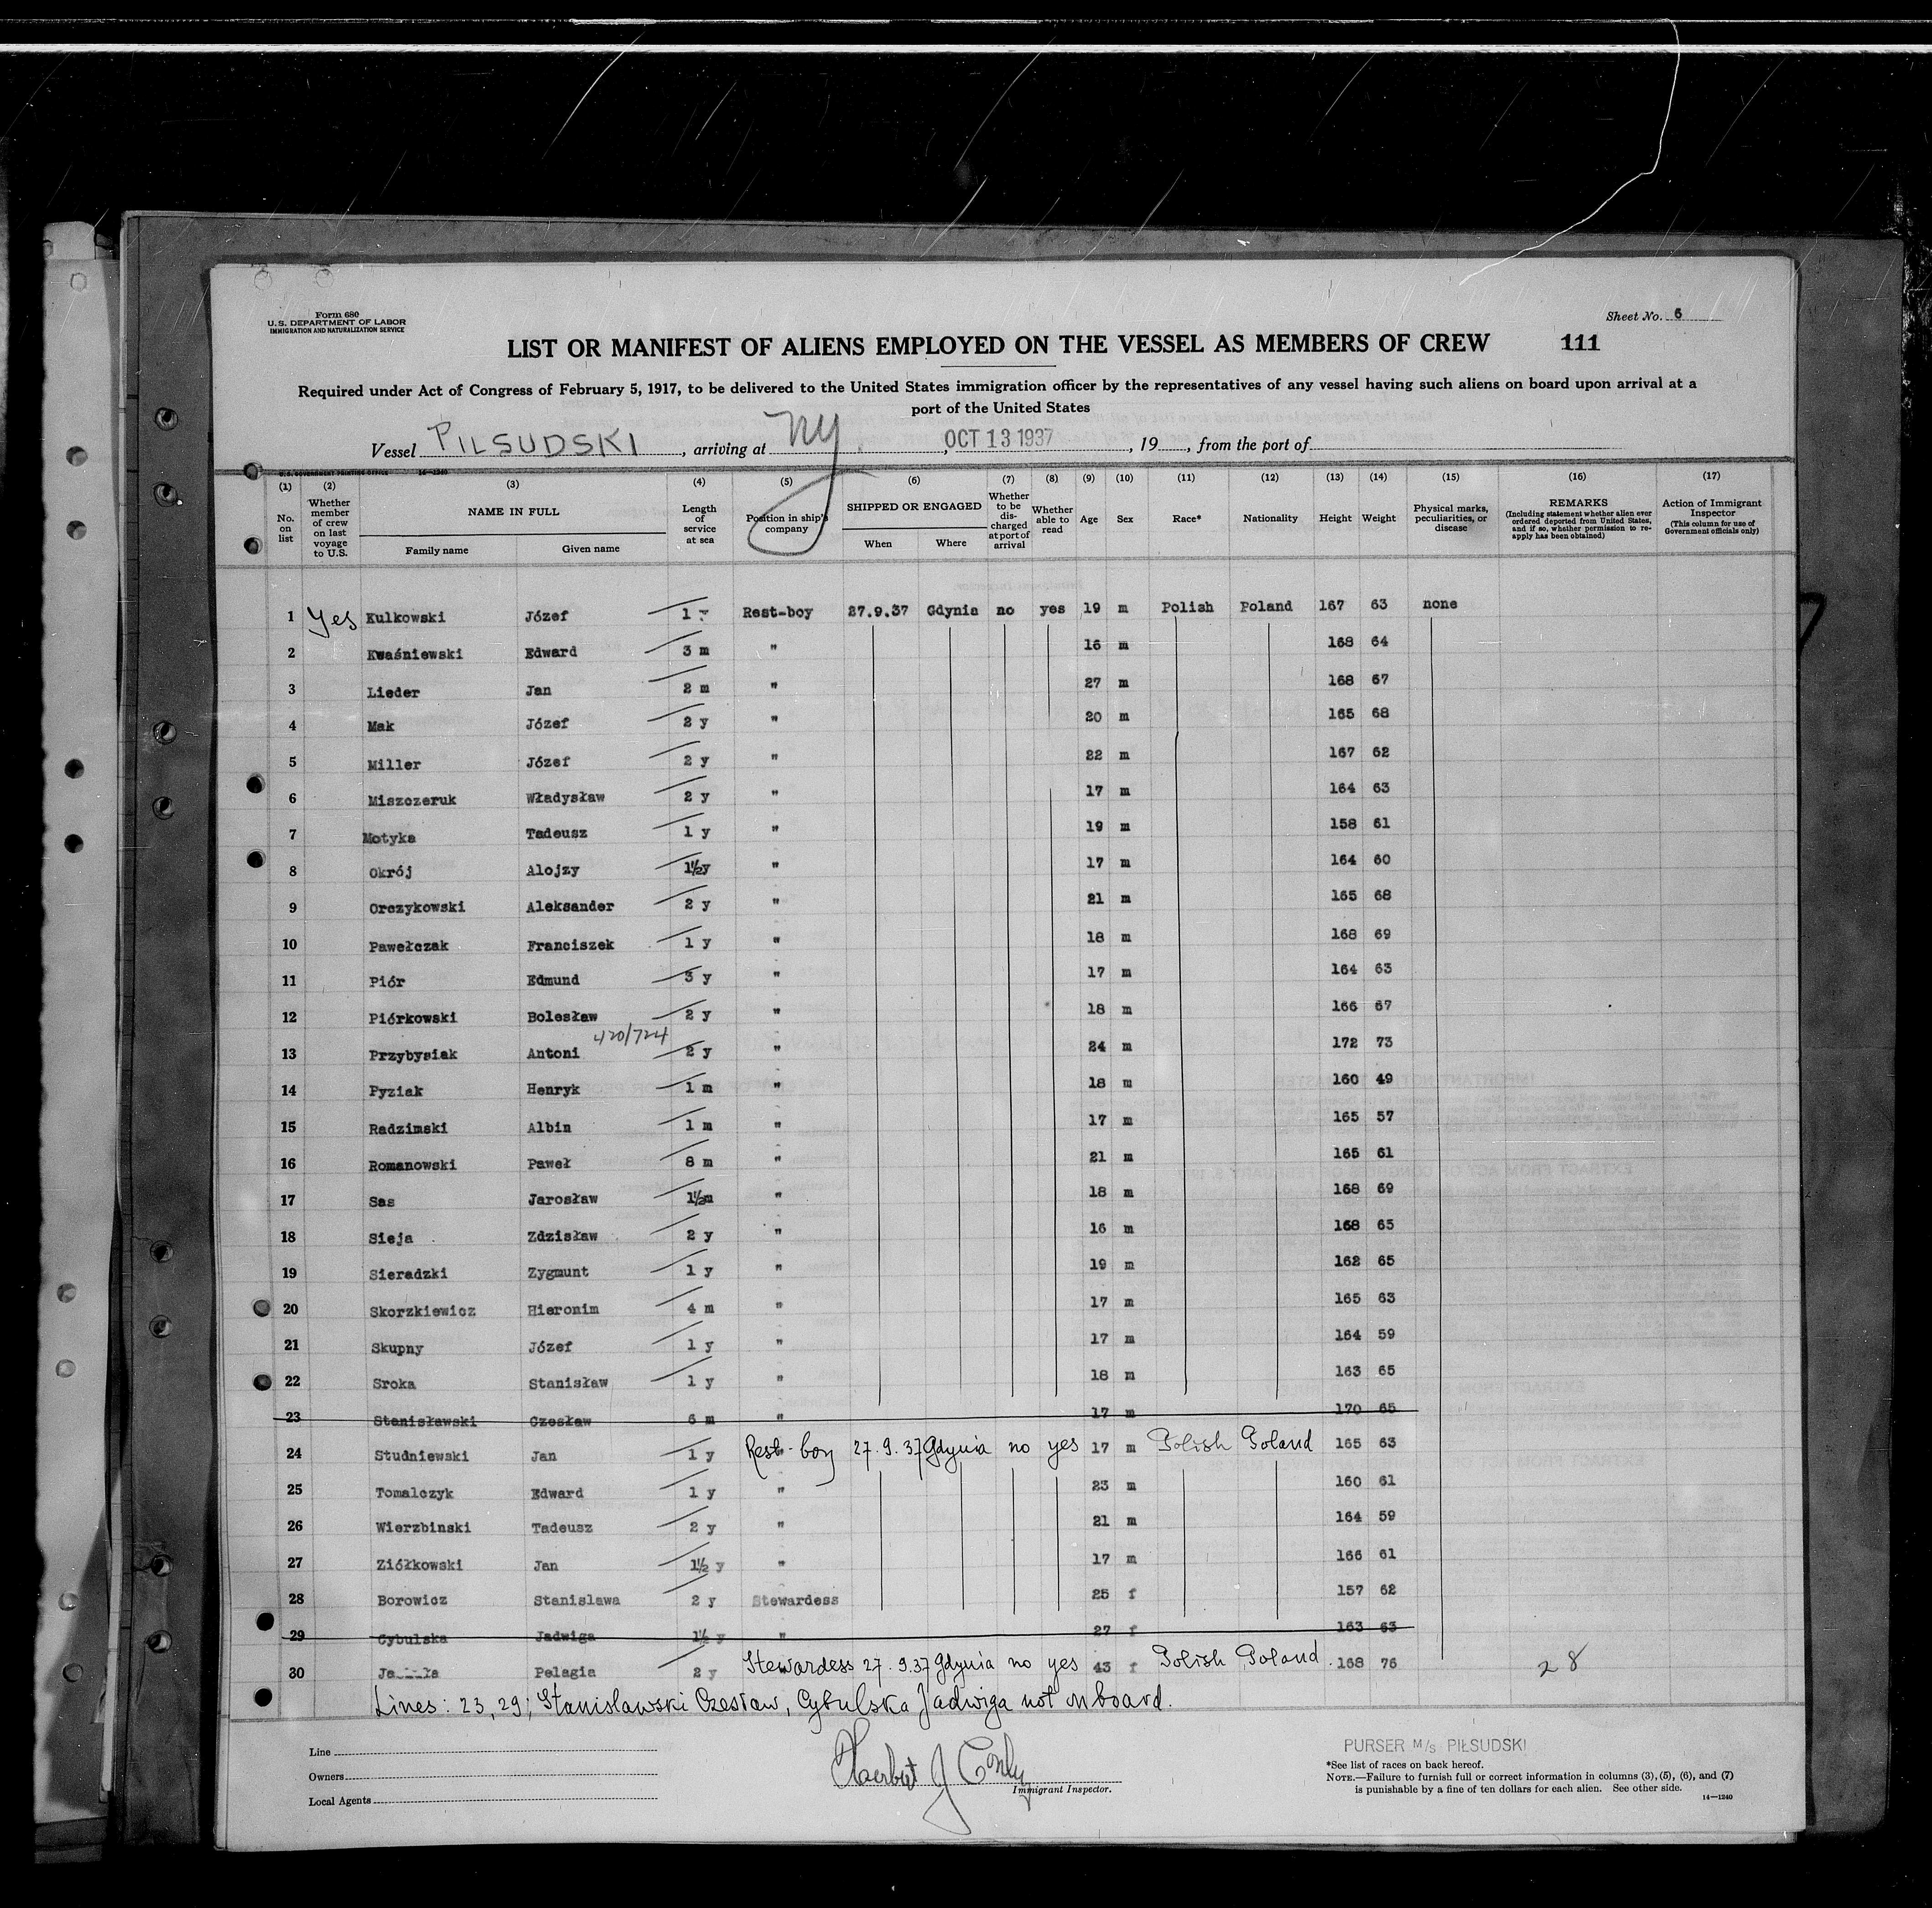 Form 680
U.S. DEPARTMENT OF LABOR
IMMIGRATION AND NATURALIZATION SERVICE
Sheet No. 6
LIST OR MANIFEST OF ALIENS EMPLOYED ON THE VESSEL AS MEMBERS OF CREW 111
Required under Act of Congress of February 5, 1917, to be delivered to the United States immigration officer by the representatives of any vessel having such aliens on board upon arrival at a
port of the United States
Vessel PILSUDSKI, arriving at NY, OCT 13 1937, 19, from the port of
U.S. GOVERNMENT PRINTING OFFICE 14-1240
(1) (2) (3) (4) (5) (6) (7) (8) (9) (10) (11) (12) (13) (14) (15) (16) (17)
No. on list
Whether member of crew on last voyage to U.S.
NAME IN FULL
Family name Given name
Length of service at sea
Position in ship's company
SHIPPED OR ENGAGED
When Where
Whether to be discharged at port of arrival
Whether able to read
Age Sex Race* Nationality Height Weight
Physical marks, peculiarities, or disease
REMARKS
(Including statement whether alien ever ordered deported from United States, and if so, whether permission to reapply has been obtained)
Action of Immigrant Inspector
(This column for use of Government officials only)
1 Yes Kulkowski Józef 1 y Rest-boy 27.9.37 Gdynia no yes 19 m Polish Poland 167 63 none
2 Kwaśniewski Edward 3 m " 16 m 168 64
3 Lieder Jan 2 m " 27 m 168 67
4 Mak Józef 2 y " 20 m 165 68
5 Miller Józef 2 y " 22 m 167 62
6 Miszczeruk Władysław 2 y " 17 m 164 63
7 Motyka Tadeusz 1 y " 19 m 158 61
8 Okrój Alojzy 1½y " 17 m 164 60
9 Orczykowski Aleksander 2 y " 21 m 165 68
10 Pawełczak Franciszek 1 y " 18 m 168 69
11 Piór Edmund 3 y " 17 m 164 63
12 Piórkowski Bolesław 2 y " 18 m 166 67
420/724
13 Przybysiak Antoni 2 y " 24 m 172 73
14 Pyziak Henryk 1 m " 18 m 160 49
15 Radzimski Albin 1 m " 17 m 165 57
16 Romanowski Paweł 8 m " 21 m 165 61
17 Sas Jarosław 1½m " 18 m 168 69
18 Sieja Zdzisław 2 y " 16 m 168 65
19 Sieradzki Zygmunt 1 y " 19 m 162 65
20 Skorzkiewicz Hieronim 4 m " 17 m 165 63
21 Skupny Józef 1 y " 17 m 164 59
22 Sroka Stanisław 1 y " 18 m 163 65
23 Stanisławski Czesław 6 m " 17 m 170 65
24 Studniewski Jan 1 y Rest-boy 27.9.37 Gdynia no yes 17 m Polish Poland 165 63
25 Tomalczyk Edward 1 y " 23 m 160 61
26 Wierzbinski Tadeusz 2 y " 21 m 164 59
27 Ziółkowski Jan 1½ y " 17 m 166 61
28 Borowicz Stanislawa 2 y Stewardess 25 f 157 62
29 Cybulska Jadwiga 1½ y " 27 f 163 63
30 Pelagia 2 y Stewardess 27.9.37 Gdynia no yes 43 f Polish Poland 168 76 28
Lines: 23, 29; Stanisławski Czesław, Cybulska Jadwiga not on board.
Line
Owners
Local Agents
Immigrant Inspector.
PURSER M/S PIŁSUDSKI
*See list of races on back hereof.
NOTE.—Failure to furnish full or correct information in columns (3), (5), (6), and (7)
is punishable by a fine of ten dollars for each alien. See other side.
14-1240